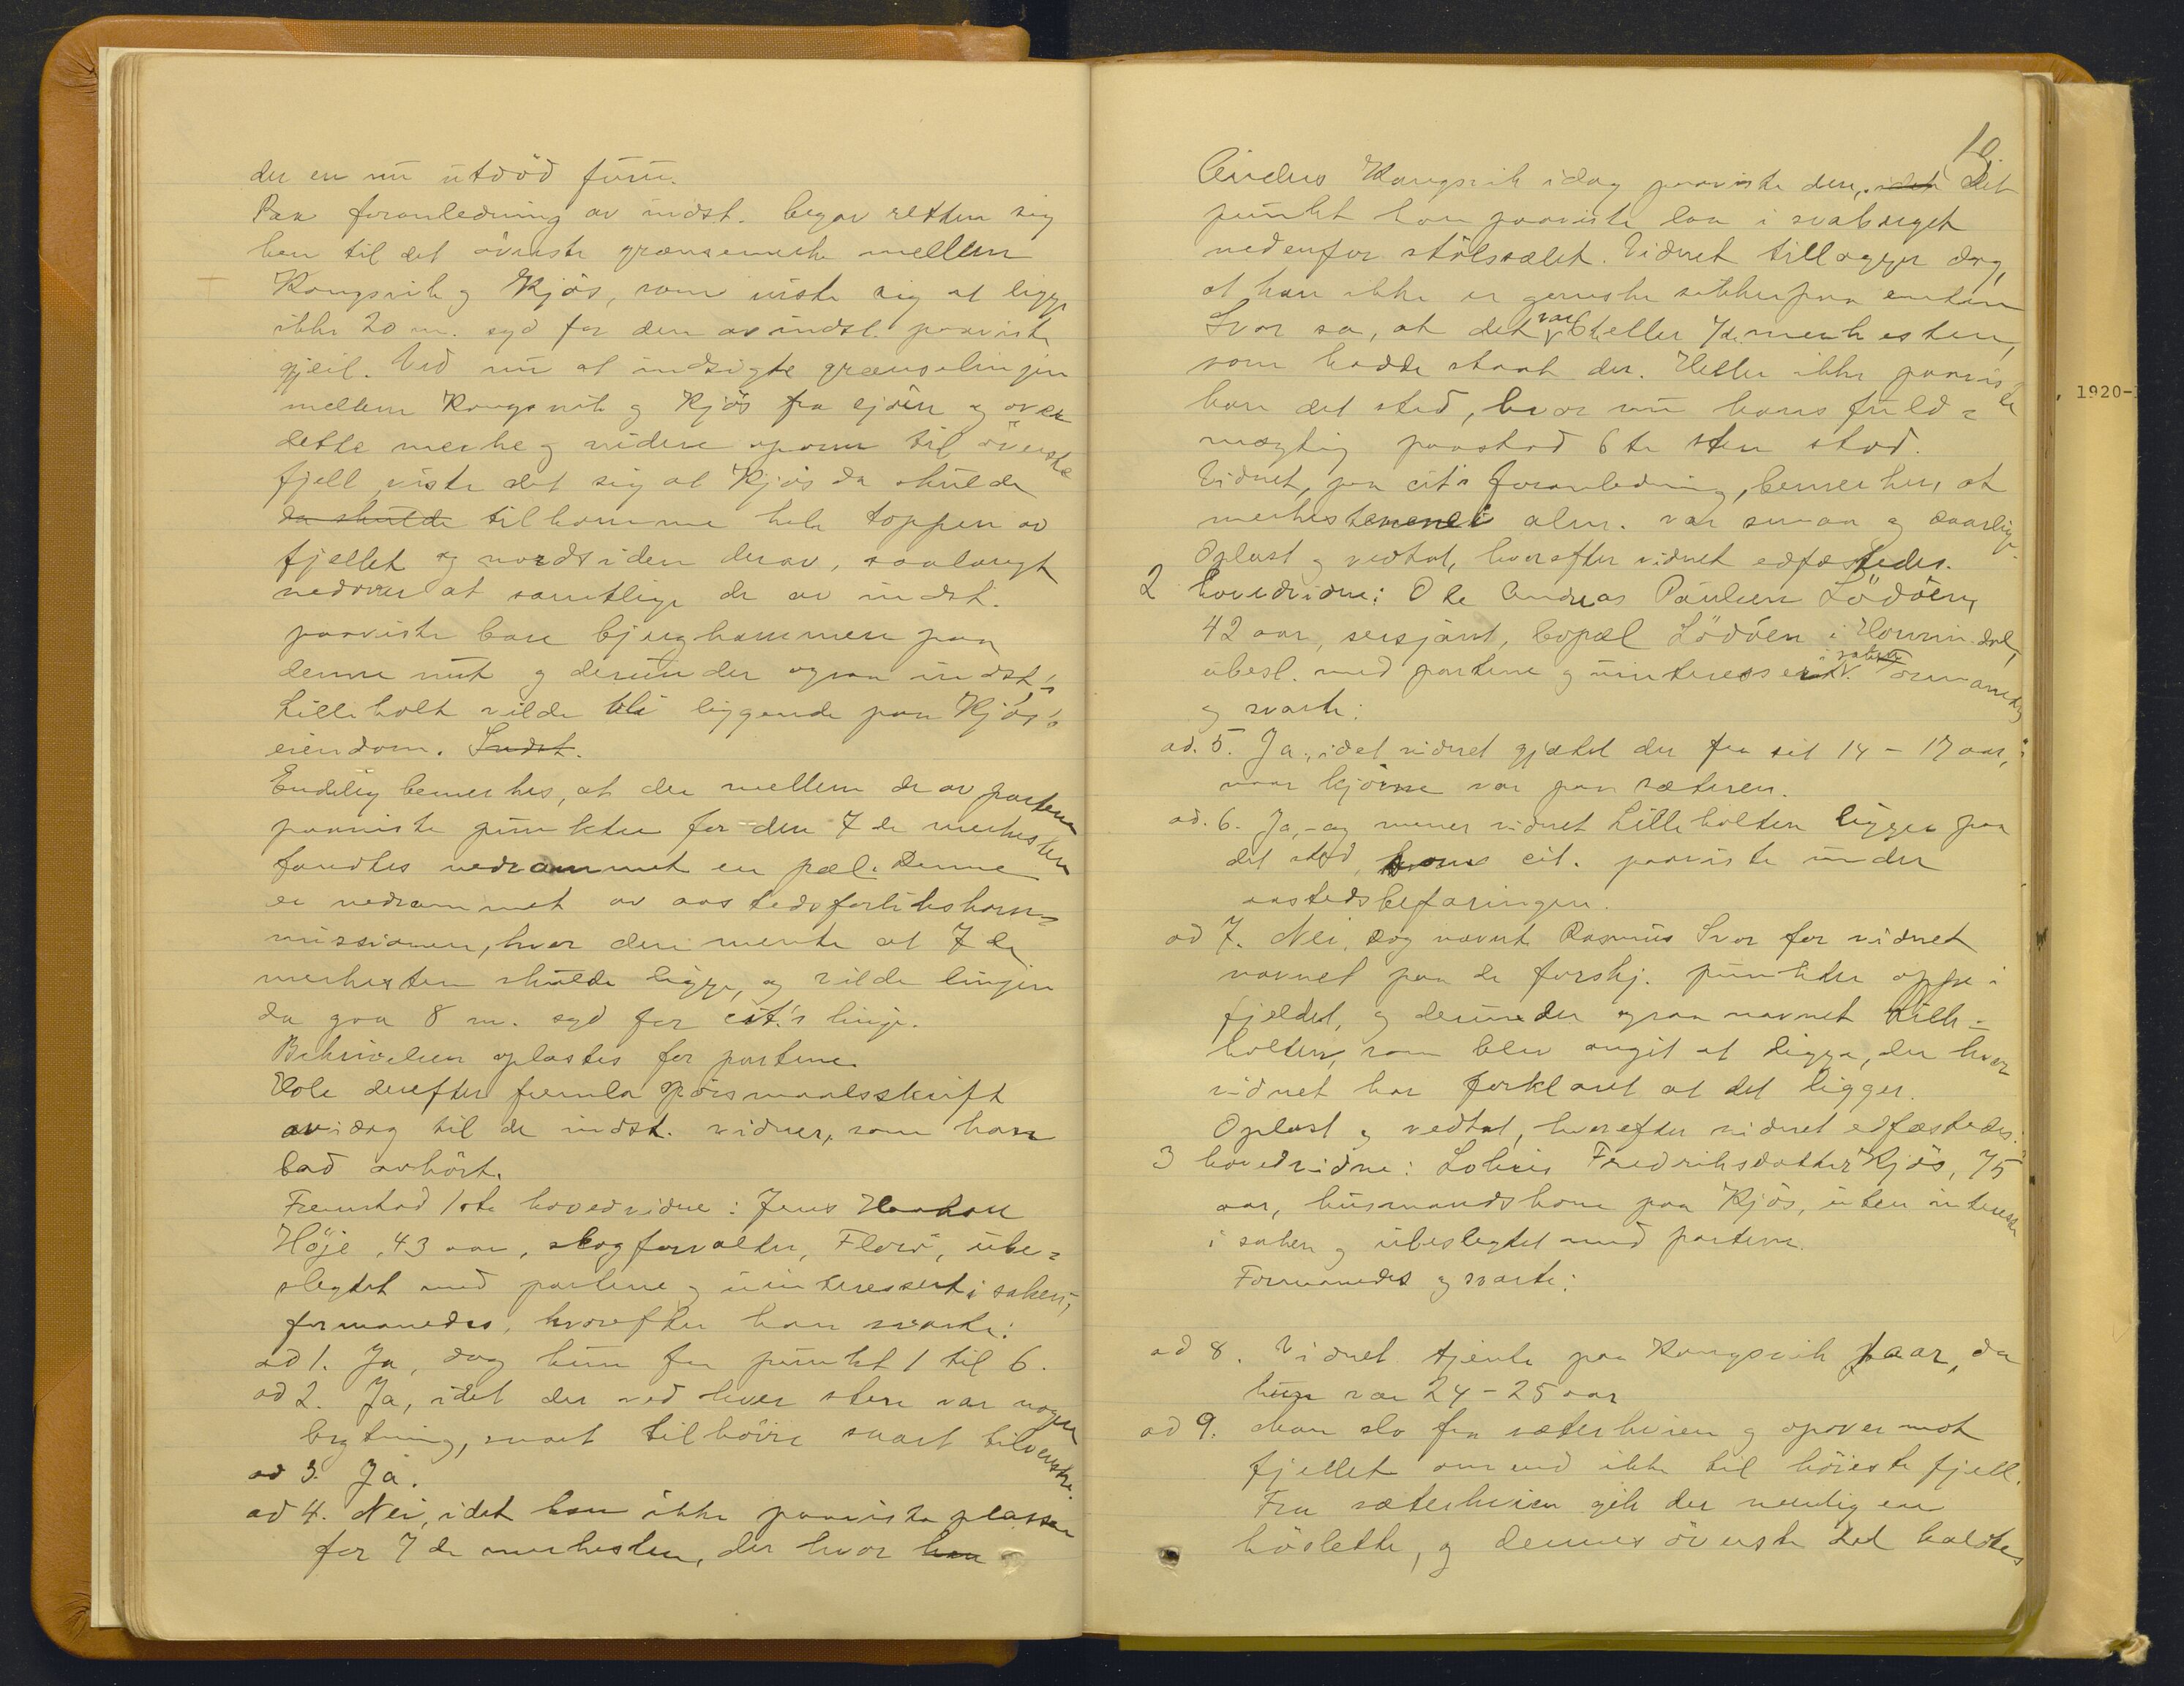 der en nu utdöd furu.
Paa foranledning av indst. begav retten sig
hen til det överste grænsemerke mellem
Kongsvik og Kjös, som viste sig at ligge
ikke 20 m. syd for den av indst. paaviste
gjeil. Ved nu at indsigte grænselinjen
mellem Kongsvik og Kjös fra sjöen og over
dette merke og videre opover til överste
fjell, viste det sig at Kjös da skulde
da skulde tilkomme hele toppen av
fjellet og nordsiden derav, saalangt
nedover at samtlige de av indst.
paaviste bare bjerghammere paa
denne nut og derunder ogsaa indst.'s
Lilleholt vilde bli liggende paa Kjös's
eiendom. Indst.
Endelig bemerkes, at der mellem de av partene
paaviste punkter for den 7de merkesten
fandtes nedrammet en pæl. Denne
er nedrammet av aastedsforlikskom-
missionen, hvor den mente at 7de
merkesten skulde ligge, og vilde linjen
da gaa 8 m. syd for cit.'s linje.
Bekrivelsen oplæstes for partene.
Hole derefter fremla spörsmaalsskrift
av idag til de indst. vidner, som han
bad avhört.
Fremstod 1ste hovedvidne: Jens Haakon
Höje, 43 aar, skogforvalter, Florö, ube-
slegtet med partene og uinteressert i saken;
formanedes, hvorefter han svarte:
ad 1. Ja, dog kun fra punkt 1 til 6.
ad 2. Ja, idet der ved hver sten var nogen
brytning, snart tilhöire snart tilvenstre.
ad 3. Ja.
ad 4. Nei, idet han ikke paaviste plassen
for 7de merkesten, der hvor han
19.
Anders Kongsvik idag paaviste den, idet Det
punkt han paaviste laa i svaberget
nedenfor stölsvælet. Vidnet tillægger dog,
at han ikke er ganske sikker paa enten
Svor sa, at det var 6te eller 7de merkesten,
som hadde staat der. Heller ikke paaviste
han det sted, hvor nu hans fuld-
mægtig paastod 6te sten stod.
Vidnet, paa cit's foranledning, bemerker, at
merkestenene i alm. var smaa og daarlige.
Oplæst og vedtat, hvorefter vidnet edfæstedes.
2 hovedvidne: Ole Andreas Paulsen Lödöen,
42 aar, sersjant, bopæl Lödöen i Hornindal,
ubesl. med partene og uinteressert i saken. Formanedes
og svarte:
ad. 5. Ja, idet vidnet gjætet der fra sit 14 - 17 aar,
naar kjörne var paa sæteren.
ad. 6. Ja, - og mener vidnet Lilleholten ligger paa
det sted, som cit. paaviste under
aastedsbefaringen.
ad 7. Nei, dog nævnte Rasmus Svor for vidnet
navnet paa de forskj. punkter oppe i
fjeldet, og derunder ogsaa navnet Lille-
holten, som blev angit at ligge, der hvor
vidnet har forklaret at det ligger.
Oplæst og vedtat, hvorefter vidnet edfæstedes.
3 hovedvidne: Lovise Fredriksdatter Kjös, 75
aar, husmandskone paa Kjös, uten interesse
i saken og ubeslegtet med partene.
Formanedes og svarte:
ad 8. Vidnet tjente paa Kongsvik 1 aar, da
hun var 24 - 25 aar
ad 9. Man slo fra sæterkvien og opover mot
fjellet om end ikke til höieste fjell.
Fra sæterkvien gik der nemlig en
höslette, og dennes överste del kaldtes
1920-